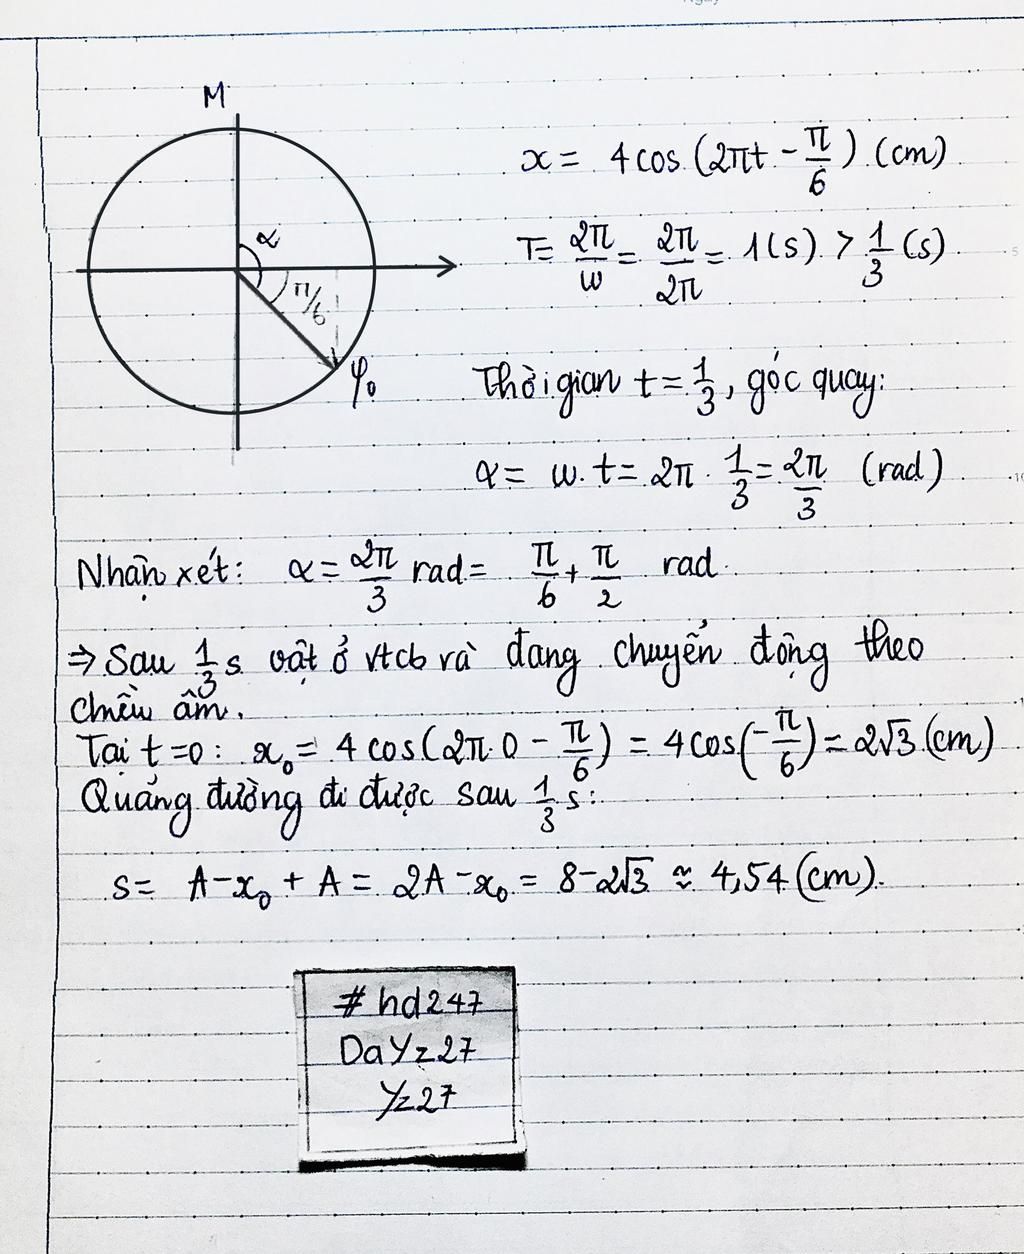 M
x = 4cos (2πt - π/6) (cm)
α
T= 2π/w = 2π/2π = 1(s) > 1/3 (s)
π/6
φ₀
Thời gian t = 1/3, góc quay:
α = w.t = 2π . 1/3 = 2π/3 (rad)
Nhận xét: α = 2π/3 rad = π/6 + π/2 rad.
⇒ Sau 1/3 s vật ở vtcb và đang chuyển động theo
chiều âm.
Tại t =0: x₀ = 4 cos(2π.0 - π/6) = 4cos(-π/6) = 2√3 (cm)
Quãng đường đi được sau 1/3 s:
s = A-x₀ + A = 2A -x₀ = 8-2√3 ≈ 4,54 (cm).
# hd247
DaYz27
Yz27